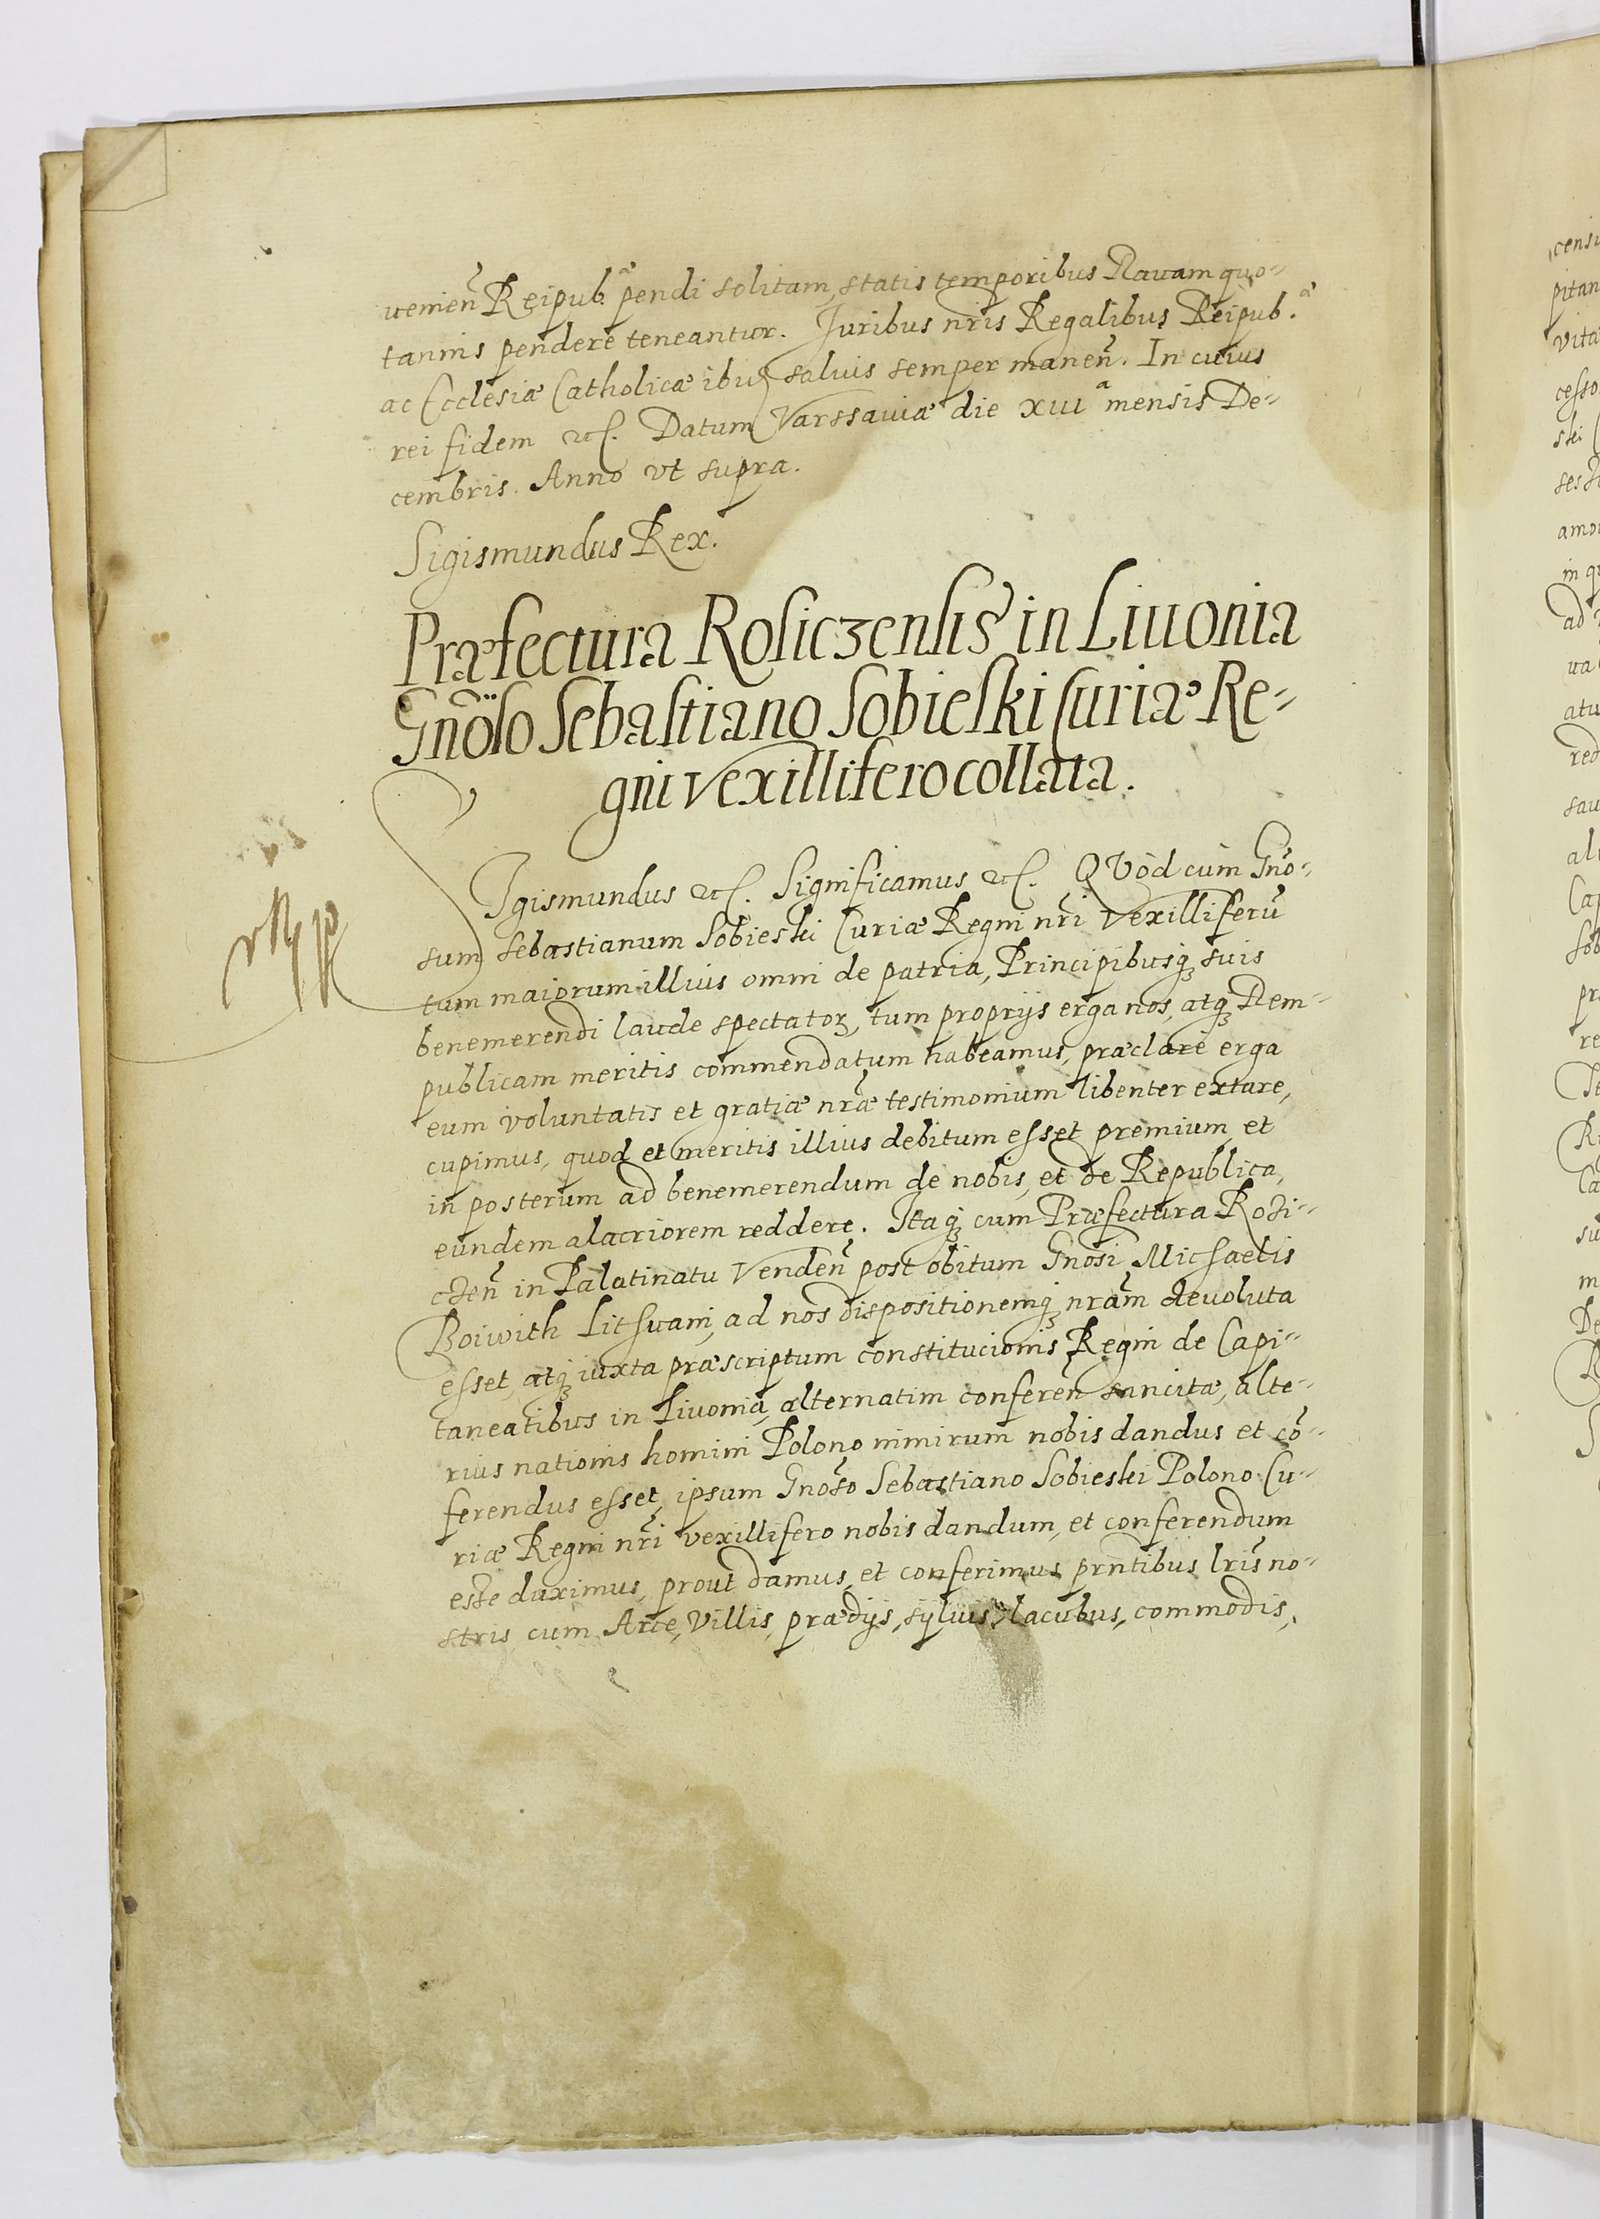 uenien̄ Reipub.ᵃᵉ pendi solitam, statis temporibus Rauam quo-
tannis pendere teneantur. Juribus nr̄is Regalibus Reipub.ᵃᵉ
ac Ecclesiæ Catholicæ ibiq saluis semper manen̄. In cuius
rei fidem etc. Datum Varssauiæ die XIIIᵃ mensis De-
cembris. Anno vt supra.
Sigismundus Rex.
Præfectura Rosiczensis in Liuonia
Gnōso Sebastiano Sobieski Curiæ Re-
gni Vexillifero collata.
SIgismundus etc. Significamus etc. QVòd cum Gnō-
sum Sebastianum Sobieski Curiæ Regni nr̄i Vexilliferū
tum maiorum illius omni de patria, Principibusq̨ suis
benemerendi laude spectatoꝝ, tum proprijs erga nos, atq̨ Rem-
publicam meritis commendatum habeamus, præclare erga
eum voluntatis et gratiæ nr̄æ testimonium libenter extare,
cupimus, quod et meritis illius debitum esset premium, et
in posterum ad benemerendum de nobis, et de Republica,
eundem alacriorem reddere. Itaq̨ cum Præfectura Rozi-
czen̄ in Palatinatu Venden̄ post obitum Gnōsi Michaelis
Boiwith Lithuani, ad nos dispositionemq̨ nrām deuoluta
esset, atq̨ iuxta præscriptum constitucionis Regni de Capi-
taneatibus in Liuonia, alternatim conferen̄ sancitæ, alte-
rius nationis homini Polono nimirum nobis dandus et cō-
ferendus esset, ipsum Gnōso Sebastiano Sobieski Polono Cu-
riæ Regni nr̄i vexillifero nobis dandum, et conferendum
esse duximus, prout damus, et conferimus prn̄tibus lr̄is no-
stris, cum Arce, Villis, prædijs, syluis, lacubus, commodis,
censu
pitan
vita
cesso
ski
amo
in q
ad
ua
atu
red
sau
Ca
Sob
pr
re
su
m